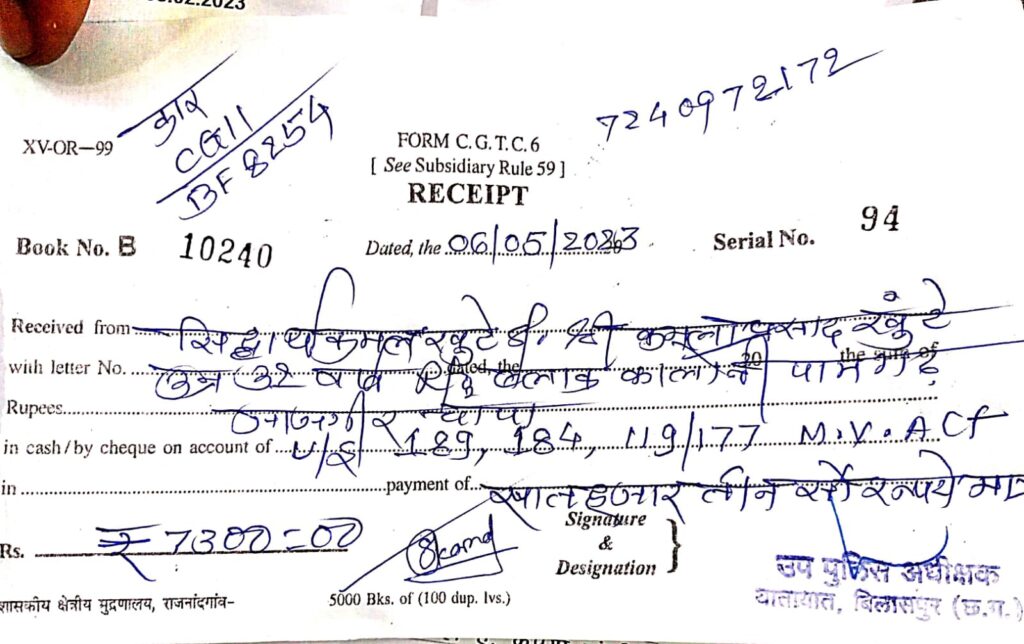 .02.2023
कार
CG11
BF 8254
7240972172
XV-OR—99
FORM C.G.T.C.6
[ See Subsidiary Rule 59 ]
RECEIPT
Book No. B 10240 Dated, the 06/05/2023 Serial No. 94
Received from सिद्धार्थ कमल खुटे ई. श्री कमला प्रसाद खुंटे
with letter No. उम्र 32 वर्ष dated, the ब्लाक कालोनी 20 the sum of पामगढ़
Rupees जांजगीर चांपा
in cash/by cheque on account of धारा 189, 184, 119/177 M.V.ACT
in payment of सात हजार तीन सौ रूपये मात्र
Rs. ₹ 7300=00
Signature
&
Designation
उप पुलिस अधीक्षक
यातायात, बिलासपुर (छ.ग.)
शासकीय क्षेत्रीय मुद्रणालय, राजनांदगांव-
5000 Bks. of (100 dup. lvs.)